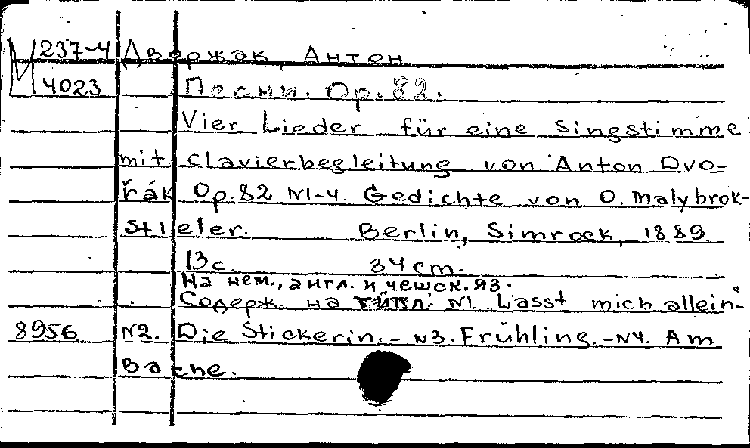 М 237-4 Дворжак, Антон
4023 Песни. Op. 82.
Vier Lieder für eine Singstimme
mit Clavierbegleitung von Anton Dvo-
řák Op. 82 N1-4. Gedichte von O. Malybrok-
Stieler. Berlin, Simrock, 1889
13 с. 34 cm.
На нем., англ. и чешск. яз.
Содерж. на титл: N1. Lasst mich allein.-
8956 N2. Die Stickerin.- N3. Frühling.- N4. Am
Bache.